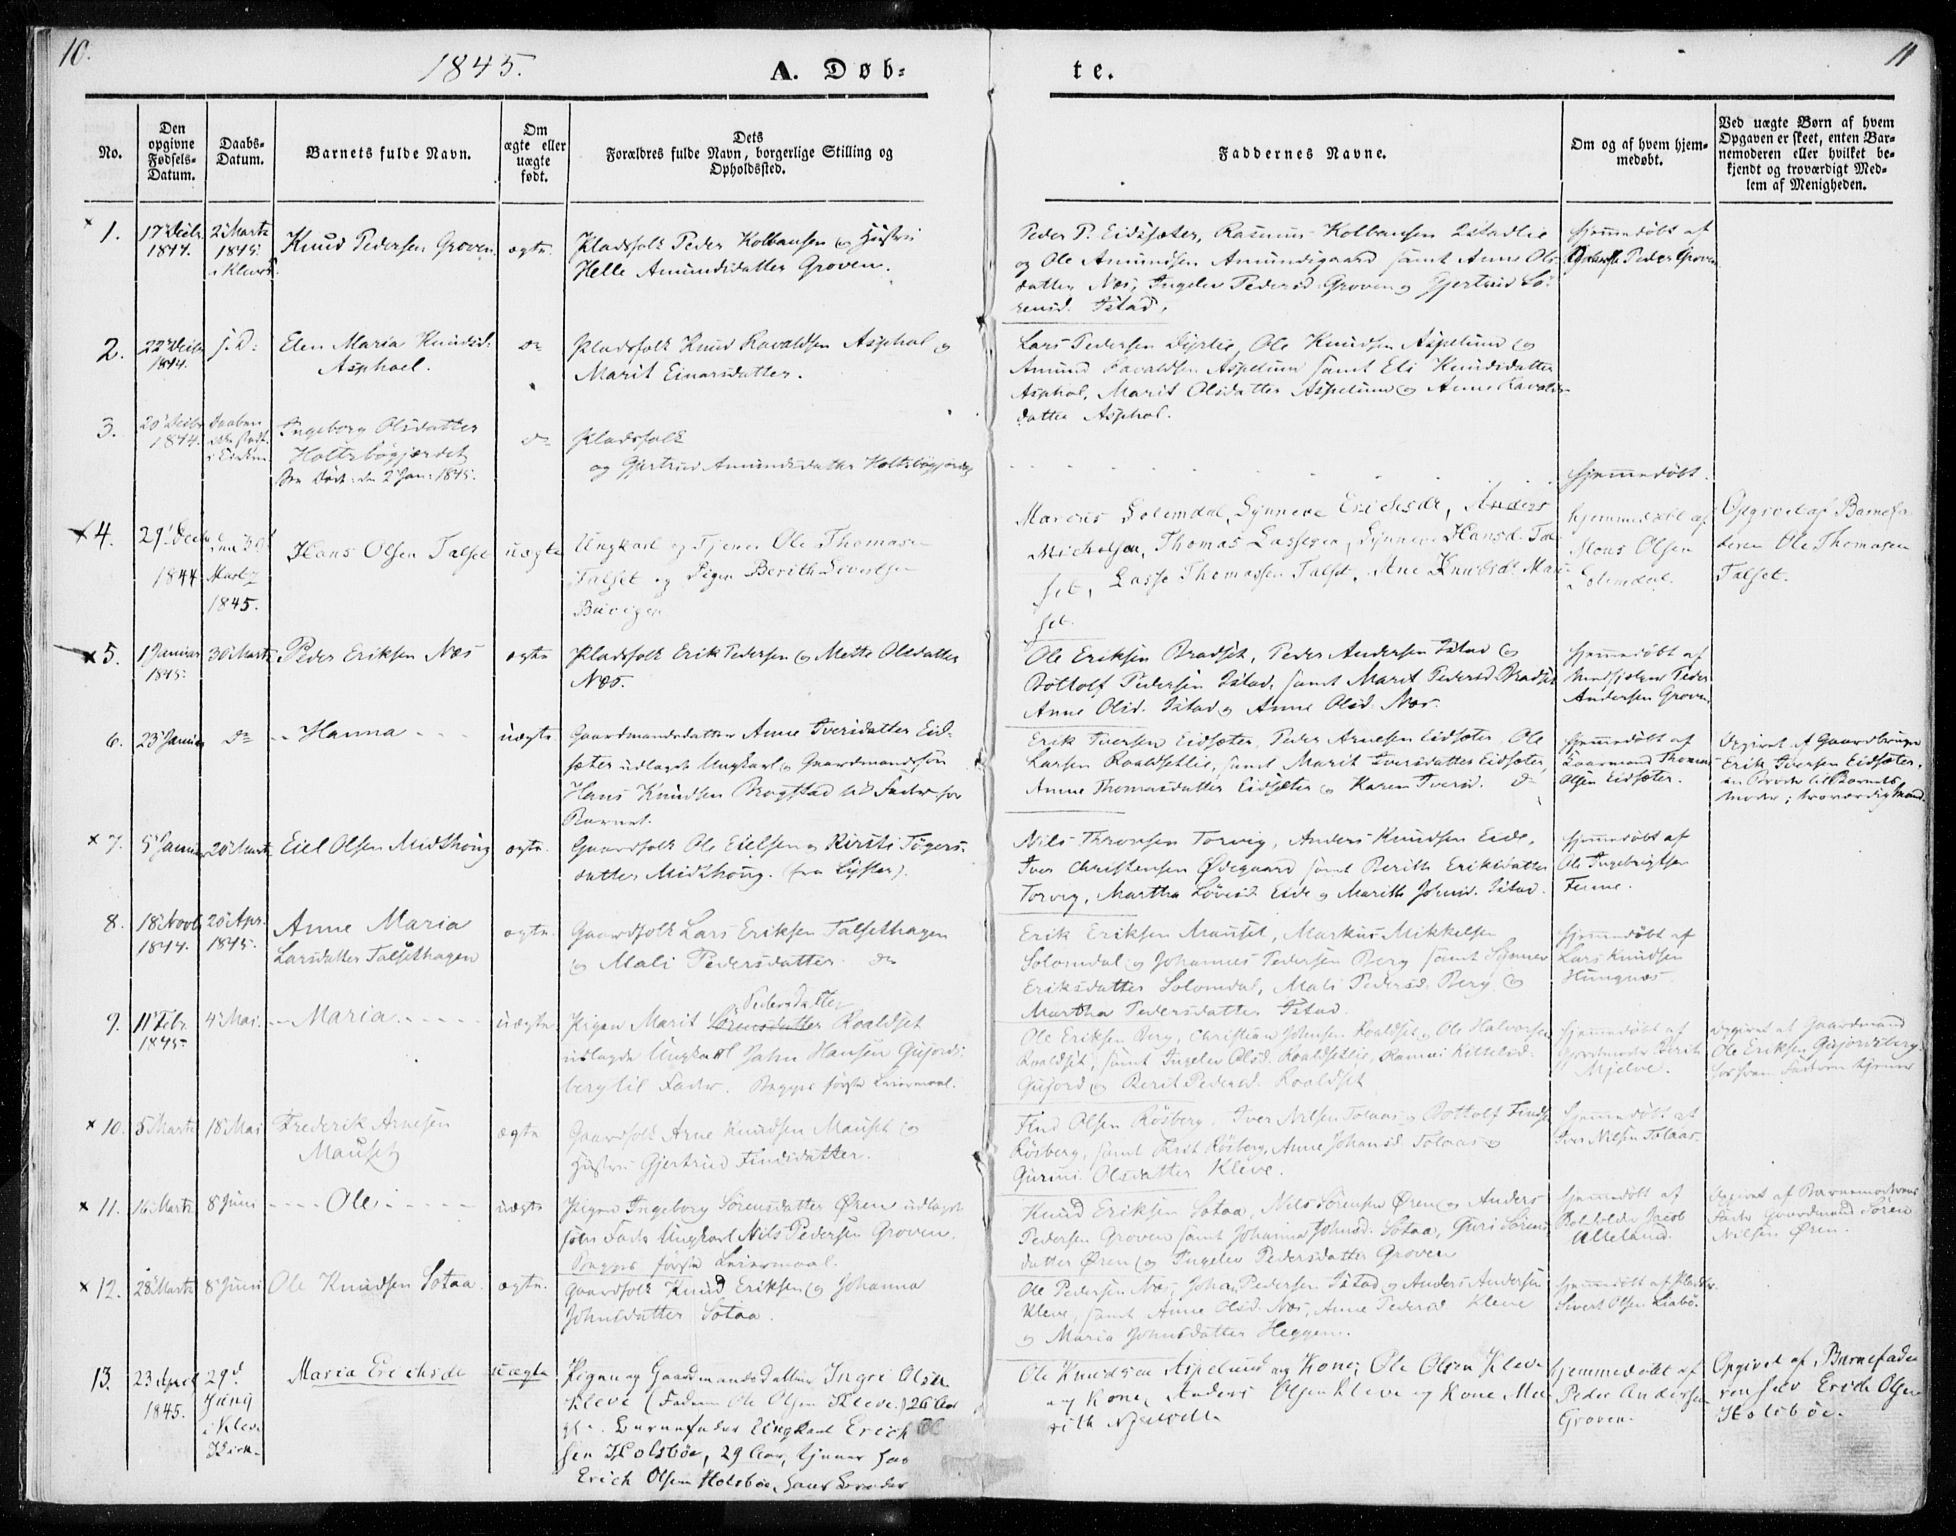 10.
1845.
A. Døb-
te.
11
No.
Den opgivne Fødsels-Datum.
Daabs-Datum.
Barnets fulde Navn.
Om ægte eller uægte født.
Dets
Forældres fulde Navn, borgerlige Stilling og
Opholdssted.
Faddernes Navne.
Om og af hvem hjem-
medøbt.
Ved uægte Børn af hvem
Opgaven er skeet, enten Bar-
nemoderen eller hvilket be-
kjendt og troværdigt Med-
lem af Menigheden.
× 1.
1844.
1845.
Knud Pedersen Groven
ægte.
Pladsfolk Peder Kolbansen og Hustru
Helle Amundsdatter Groven.
Peder P. Eidsæter, Rasmus Kolbansen
og Ole Amundsen Amundsgaard samt Anne Ols-
datter Næs, Ingelev Pedersd. Groven og Gjertrud Sø-
rensd. Istad.
hjemmedøbt af
Peder Groven
2.
1844.
s. D.
Elen Maria Knudsd.
Asphoel.
do
Pladsfolk Knud Ravaldsen Asphol og
Marit Einarsdatter.
Lars Pedersen Ole Knudsen Aspelund og
Amund Ravaldsen Aspelund samt Eli Knudsdatter
Asphol, Marit Olsdatter Aspelund og Anne
datter Asphol.
3.
1844.
Ingeborg Olsdatter
Holtsbøgjærdet
Død den 2 Jan: 1845.
do
Pladsfolk
og Gjertrud Amundsdatter
hjemmedøbt.
× 4.
29
1844
1845.
Hans Olsen Talset
uægte
Ungkarl og Tjener Ole Thomasen
Talset og Pigen Berith Sivertsen
Marcus Solemdal, Synneve Erichsdr, Anders
Michelsen, Thomas Lassesen, Synneve Hansd. Tal-
set, Lasse Thomassen Talset, Ane Knudsdr. Mau-
set.
hjemmedøbt af
Mons Olsen
Solemdal.
Opgivet af Barnefa-
deren Ole Thomasen
Talset.
× 5.
1 Januar
1845.
30 Marts
Peder Eriksen Næs
ægte
Pladsfolk Erik Pedersen og Mette Olsdatter
Næs.
Ole Eriksen Bradset, Peder Andersen Istad og
Bottolf Pedersen Istad, samt Marit Pedersd. Bradset
Anne Olsd. Istad og Anne Olsd. Næs.
hjemmedøbt af
Peder
Andersen Groven
6.
23 Januar
do
-- Hanna - - -
uægte
Gaardmandsdatter Anne Iversdatter Eid-
sæter udlagde Ungkarl og Gaardmandssøn
Hans Knudsen Brogstad til Fader for
Barnet.
Erik Iversen Eidsæter, Peder Arnesen Eidsæter, Ole
Larsen Roaldsetlie, samt Marit Iversdatter Eidsæter,
Anne Thomasdatter Eidsæter og Karen Iversd. do
hjemmedøbt af
Thomas
Olsen Eidsæter.
Opgivet af Gaardbruger
Erik Iversen Eidsæter,
en Broder til Barnets
Moder, troværdig Mand.
× 7.
5 Januar
20 Marts
Eiel Olsen Midthoug
ægte.
Gaardfolk Ole Eielsen og Kirsti Tøgers-
datter Midthoug. (fra Lyster).
Nils Thronsen Torvig, Anders Knudsen Eide,
Iver Christensen Ødegaard samt Berith Eriksdatter
Torvig, Martha Eide og Marith Johnsd. Istad.
hjemmedøbt af
Ole Ingebrigtsen
8.
18 Novb
1844.
20 Apr.
1845.
Anne Maria
Larsdatter Talsethagen
ægte.
Gaardfolk Lars Eriksen Talsethagen
og Mali Pedersdatter do
Erik Eriksen Mauset, Markus Mikkelsen
Solemdal og Johannes Pedersen Berg samt Synnev
Eriksdatter Solemdal, Mali Pedersd. Berg og
Martha Pedersdatter Istad.
hjemmedøbt af
Lars Knudsen
Hungnæs.
9.
11 Febr.
1845
4 Mai.
-- Maria - - - - -
uægte
Pedersdatter
Pigen Marit Sørensdatter Roaldset
udlagde Ungkarl John Hansen Gujords-
berg til Fader. Begges første Leiermaal.
Ole Eriksen Berg, Christian Johnsen Roaldset, Ole Halvorsen
Roaldset, samt Ingelev Olsd. Roaldsetlie, Kittelsd.
Gujord og Berit Pedersd. Roaldset
hjemmedøbt af
Berit
Mjelve.
opgivet af Gaardmand
Ole Eriksen Gujordsberg
hos hvem Faderen tjener
× 10.
5 Marts
18 Mai
Frederik Arnesen
Mauset
ægte
Gaardfolk Arne Knudsen Mauset og
Hustru Gjertrud Findsdatter.
Find Olsen Røsberg, Iver Nilsen Tolaas og Bottolf Finds.
Røsberg, samt Røsberg, Anne Johansd. Tolaas og
Olsdatter Kleve.
hjemmedøbt af
Iver Nilsen Tolaas.
× 11.
16 Marts
8 Juni
- - - - Ole - - - - -
uægte
Pigen Ingeborg Sørensdatter Øren udlagde
som Fader Ungkarl Nils Pedersen Groven.
Begges første Leiermaal.
Knud Eriksen Sotaa, Nils Sørensen Øren og Anders
Pedersen Groven samt Johanna Johnsd. Sotaa, Guri Sørens-
datter Øren og Ingelev Pedersdatter Groven
hjemmedøbt af
Jacob
Alleland.
Opgivet af Barnemoderens
Fader Gaardmand Søren
Nilsen Øren.
× 12.
28 Marts
8 Juni
Ole Knudsen Sotaa.
ægte.
Gaardfolk Knud Eriksen og Johanna
Johnsdatter Sotaa.
Ole Pedersen Næs, Johan Pedersen Istad og Anders Andersen
Kleve, samt Anne Olsd. Næs, Anne Pedersd. Kleve
og Maria Johnsdatter Heggem.
hjemmedøbt af
Sivert Olsen
13.
23 April
1845.
29d
Junij
i Kleve
Kirke.
Maria Erichsdr
uægte
Pigen og Gaardmandsdatter Ingri Olsdr
Kleve (Faderen Ole Olsen Kleve) 26 Aar
Barnefader Ungkarl Erich Ol-
sen Holsbøe, 29 Aar, tjener hos
Erich Olsen Holsbøe, hans Broder
Ole Knudsen Aspelund og Kone, Ole Olsen Kleve
og Kone, Anders Olsen Kleve og Kone Ma-
rith
hjemmedøbt af
Peder Andersen
Groven.
Opgivet af Barnefade-
ren selv Erich Olsen
Holsbøe.